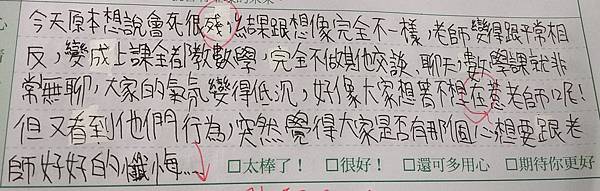 今天原本想說會死很殘,結果跟想像完全不一樣,老師變得跟平常相
反,變成上課全都教數學,完全不做其他交談、聊天,數學課就非
常無聊,大家的氣氛變得低沉,好像大家想著不想在惹老師呢!
但又看到他們行為,突然覺得大家是否有那個心想要跟老
師好好的懺悔....
□太棒了! □很好! □還可多用心 □期待你更好